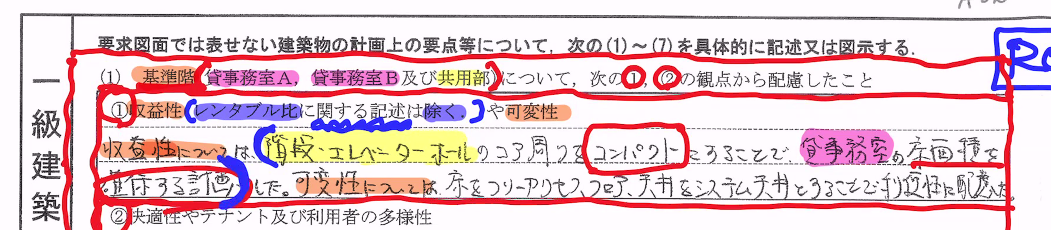 要求図面では表せない建築物の計画上の要点等について，次の(1)～(7)を具体的に記述又は図示する．
一級建築
(1) 基準階(貸事務室A，貸事務室B及び共用部)について，次の①，②の観点から配慮したこと
①収益性(レンタブル比に関する記述は除く．)や可変性
収益性については、階段・エレベーターホールのコア周りをコンパクトにすることで貸事務室の床面積を
確保する計画とした。可変性については、床をフリーアクセスフロア、天井をシステム天井とすることで可変性に配慮した。
②快適性やテナント及び利用者の多様性